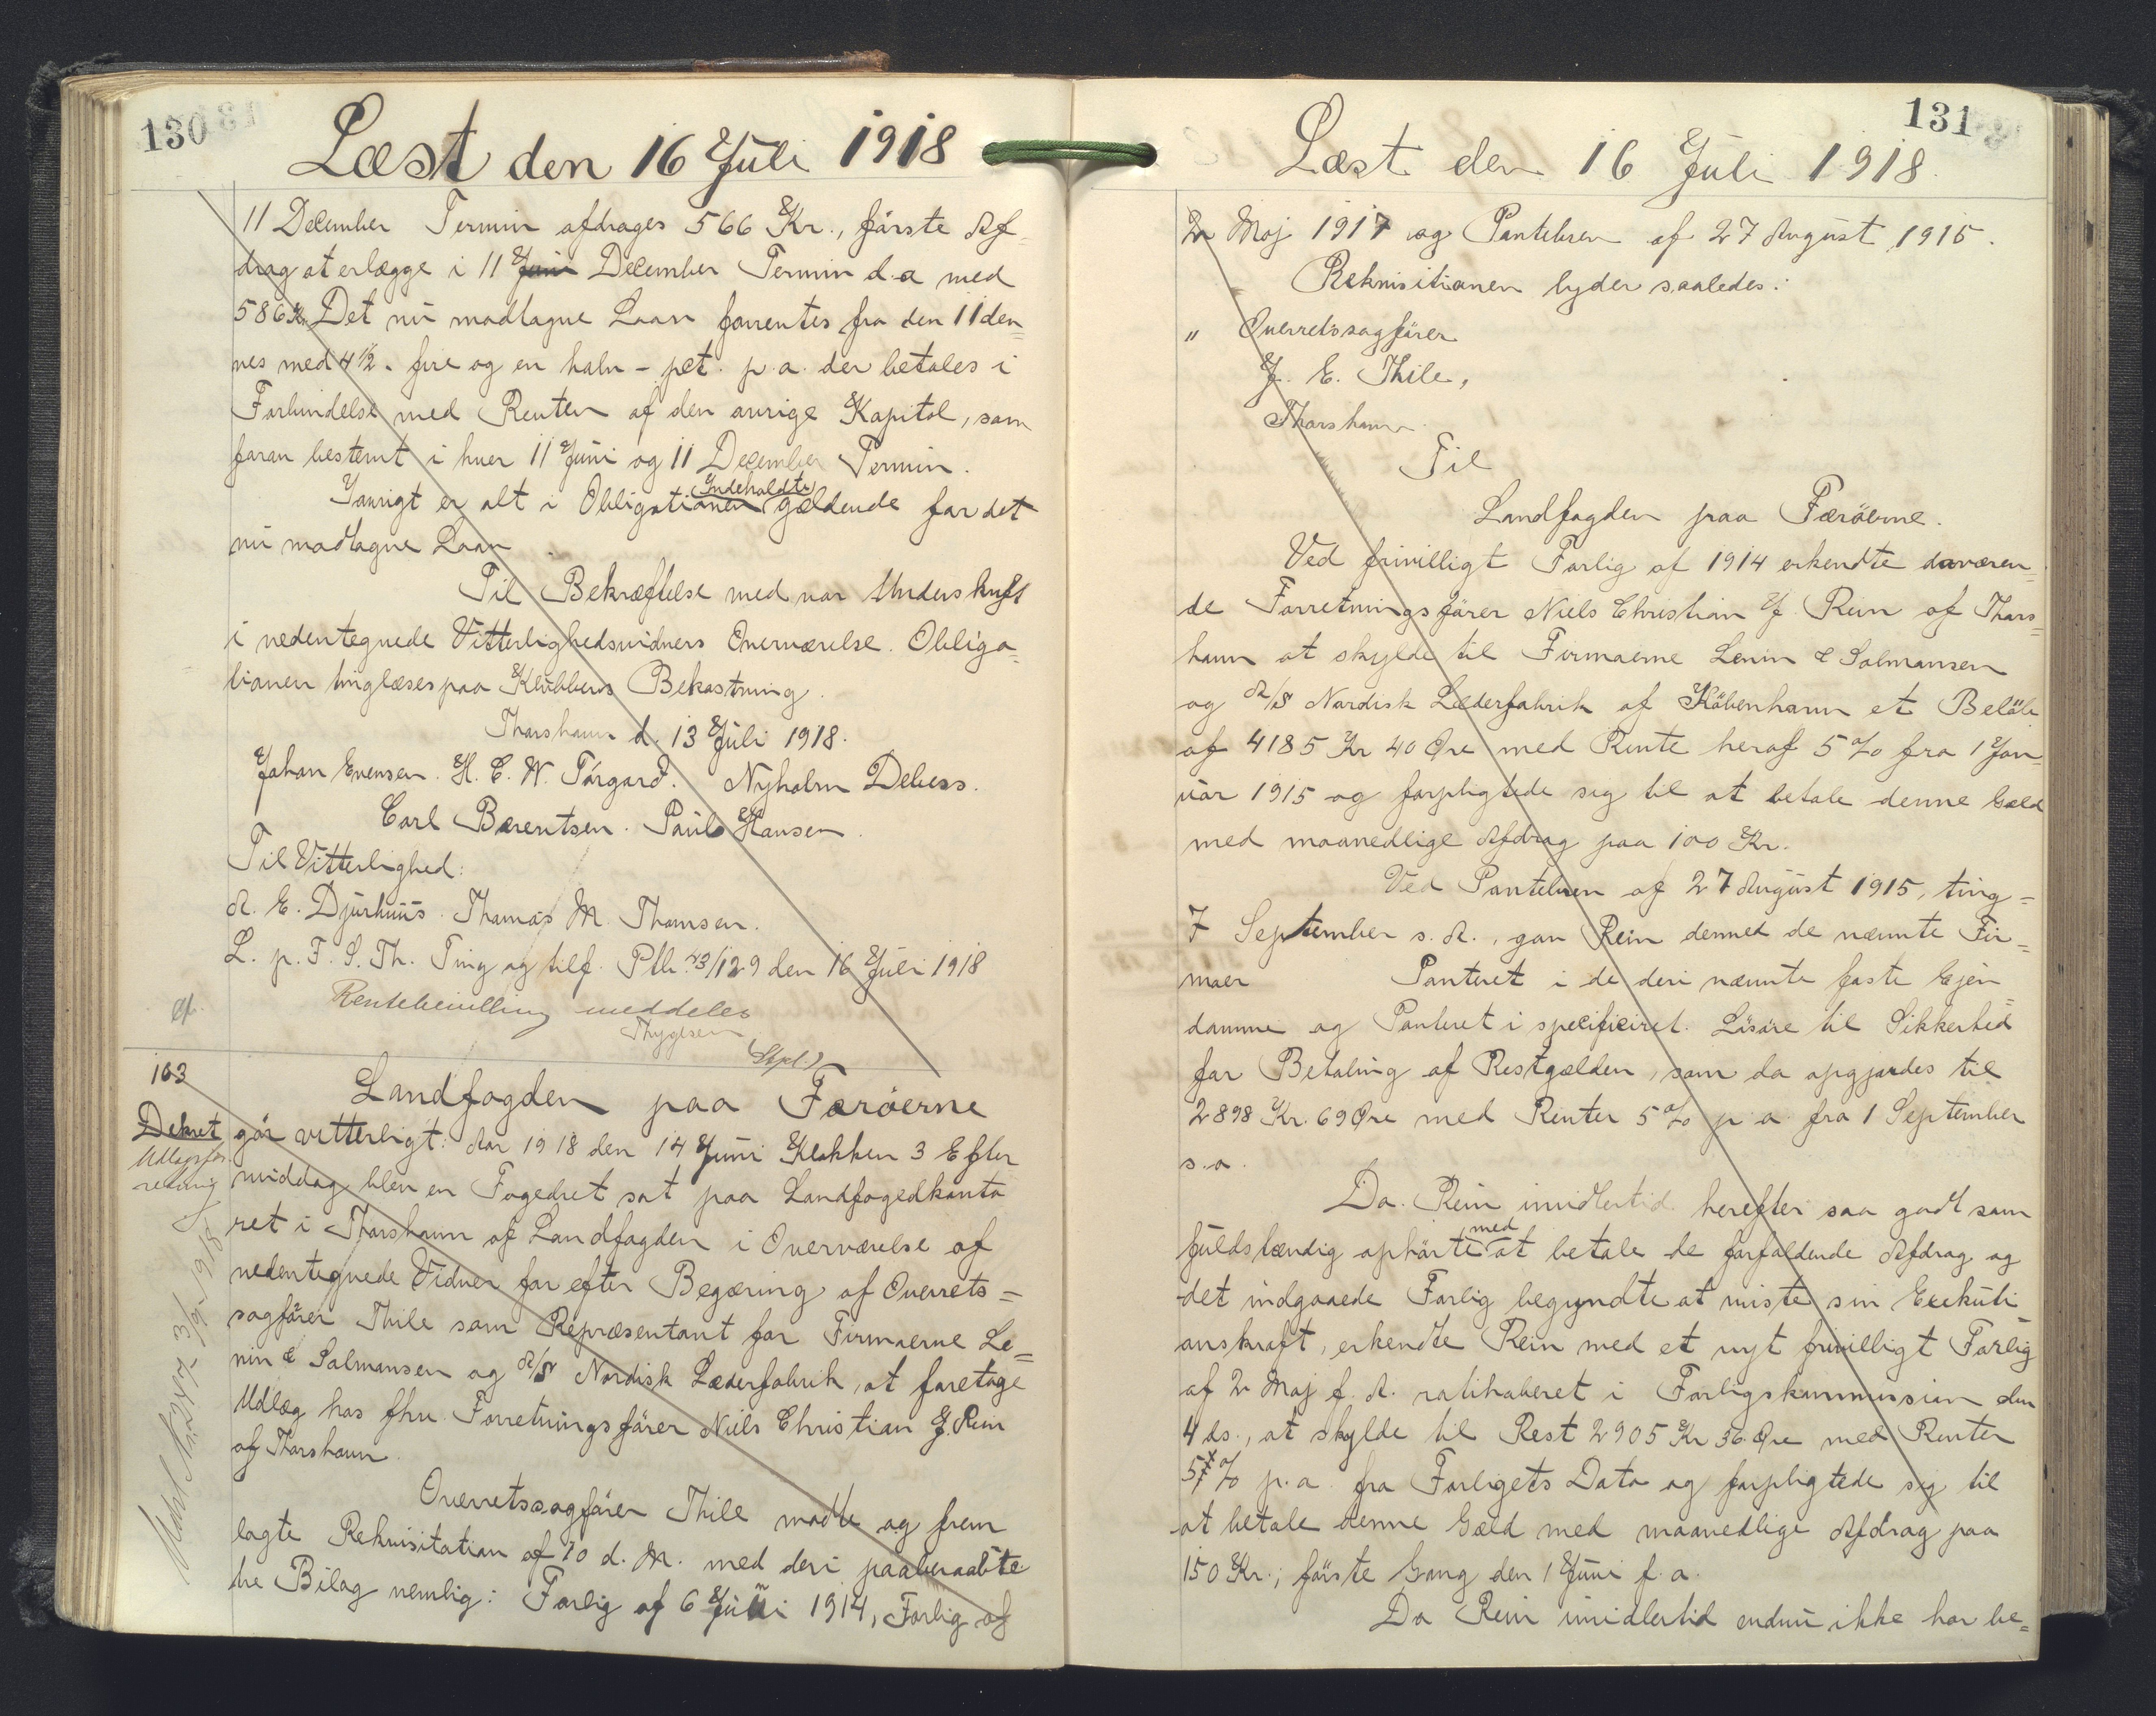 130
Læst den 16 Juli 1918
11 December Termin afdrages 566 Kr., første Af-
drag at erlægge i 11 Juni December Termin d.a med
586 Kr. Det nu modtagne Laan forrentes fra den 11 den-
nes med 4 1/2 - fire og en halv - pct. p.a. der betales i
Forbindelse med Renten af den øvrige Kapital, som
foran bestemt i hver 11 Juni og 11 December Termin.
Iøvrigt er alt i Obligationen Indeholdte gældende for det
nu modtagne Laan
Til Bekræftelse med vor Underskrift
i nedentegnede Vitterlighedsvidners Overværelse. Obliga-
tionen tinglæses paa Klubbens Bekostning.
Thorshavn d. 13 Juli 1918.
Johan Evensen. H. C. W. Tórgarð. Nyholm Debess.
Carl Bærentsen. Paul Hansen.
Til Vitterlighed:
A. E. Djurhuus. Thomas M. Thomsen.
L. p. F. S. Th. Ting og tilf. Ptb. 43/129 den 16 Juli 1918
Rentebevilling meddeles
Thygesen
(Stpl.)
163
Dekret
Udlægsfor
retning
Landfogden paa Færøerne
gør vitterligt: Aar 1918 den 14 Juni Klokken 3 Efter
middag blev en Fogedret sat paa Landfogedkonto
ret i Thorshavn af Landfogden i Overværelse af
nedentegnede Vidner for efter Begæring af Overrets=
sagfører Thile som Repræsentant for Firmaerne Le=
vin & Salmonsen og A/S Nordisk Læderfabrik, at foretage
Udlæg hos fhv. Forretningsfører Niels Christian J. Rein
af Thorshavn.
Overretssagfører Thile mødte og frem
lagte Rekvisitation af 10 d. M. med deri paaberaabte
tre Bilag nemlig: Forlig af 6 Juni 1914, Forlig af
131
Læst den 16 Juli 1918.
2 Maj 1917 og Pantebrev af 27 August 1915.
Rekvisitionen lyder saaledes:
" Overretssagfører
J. E. Thile,
Thorshavn.
Til
Landfogden paa Færøerne.
Ved frivilligt Forlig af 1914 erkendte daværen=
de Forretningsfører Niels Christian J. Rein af Thors=
havn at skylde til Firmaerne Levin & Salmonsen
og A/S Nordisk Læderfabrik af København et Beløb
af 4185 Kr 40 Øre med Rente heraf 5 % fra 1 Jan
uar 1915 og forpligtede sig til at betale denne Gæld
med maanedlige Afdrag paa 100 Kr.
Ved Pantebrev af 27 August 1915, ting=
7 September s. A., gav Rein dernæst de nævnte Fir=
maer Panteret i de deri nævnte faste Ejen
domme og Panteret i specificeret Løsøre til Sikkerhed
for Betaling af Restgælden, som da opgjordes til
2898 Kr. 69 Øre med Renter 5 % p a fra 1 September
s.a.
Da Rein imidlertid herefter saa godt som
fuldstændig ophørte med at betale de forfaldende Afdrag og
det indgaaede Forlig begyndte at miste sin Exekuti
onskraft, erkendte Rein med et nyt frivilligt Forlig
af 2 Maj f. A. ratihaberet i Forligskommission den
4 ds., at skylde til Rest 2905 Kr 36 Øre med Renter
5 % p.a. fra Forligets Dato og forpligtede sig til
at betale denne Gæld med maanedlige Afdrag paa
150 Kr., første Gang den 1 Juni f.a.
Da Rein imidlertid endnu ikke har be=